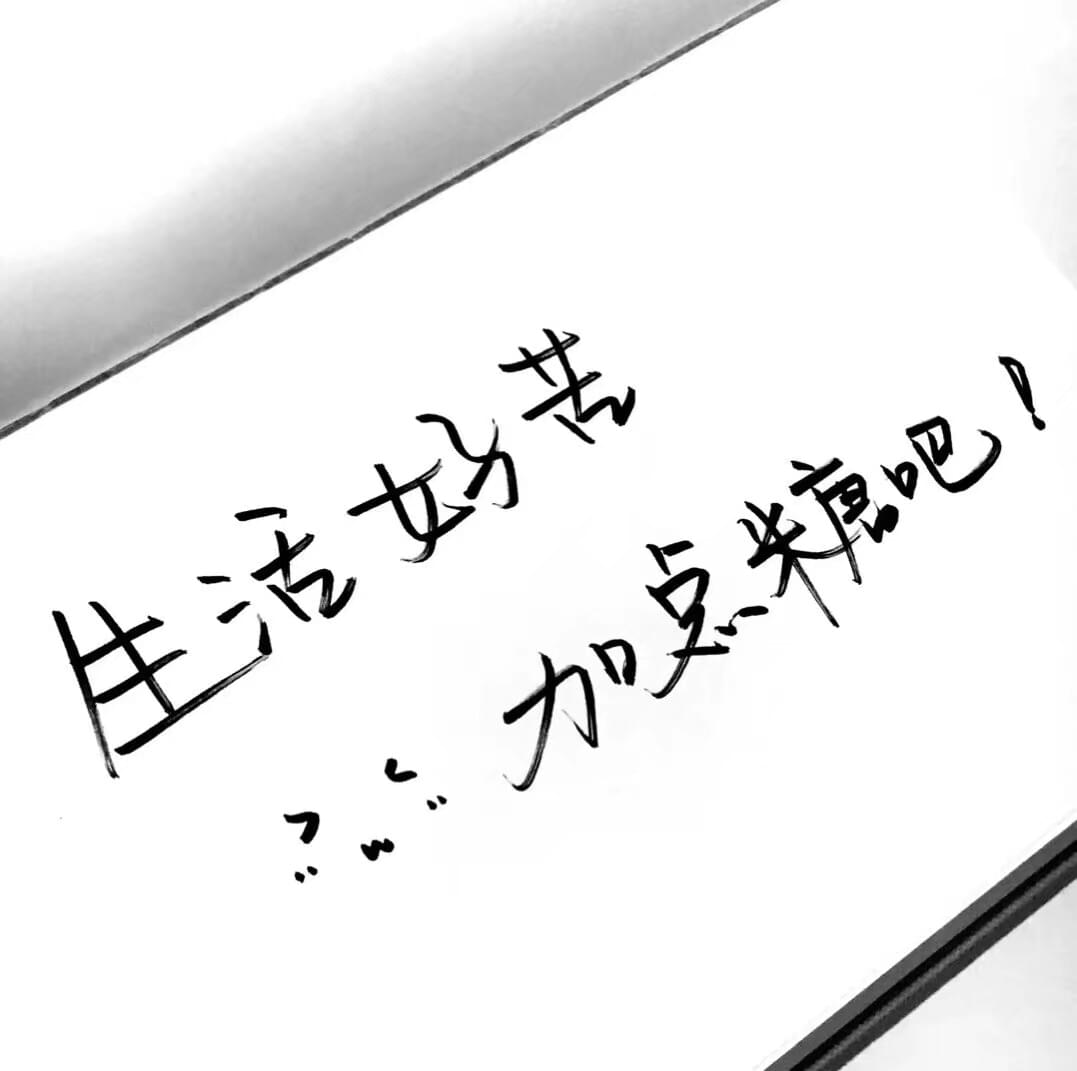 生活好苦
加点糖吧！